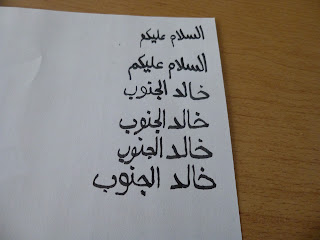 السلام عليكم
السلام عليكم
خالد الجنوب
خالد الجنوب
خالد الجنوب
خالد الجنوب